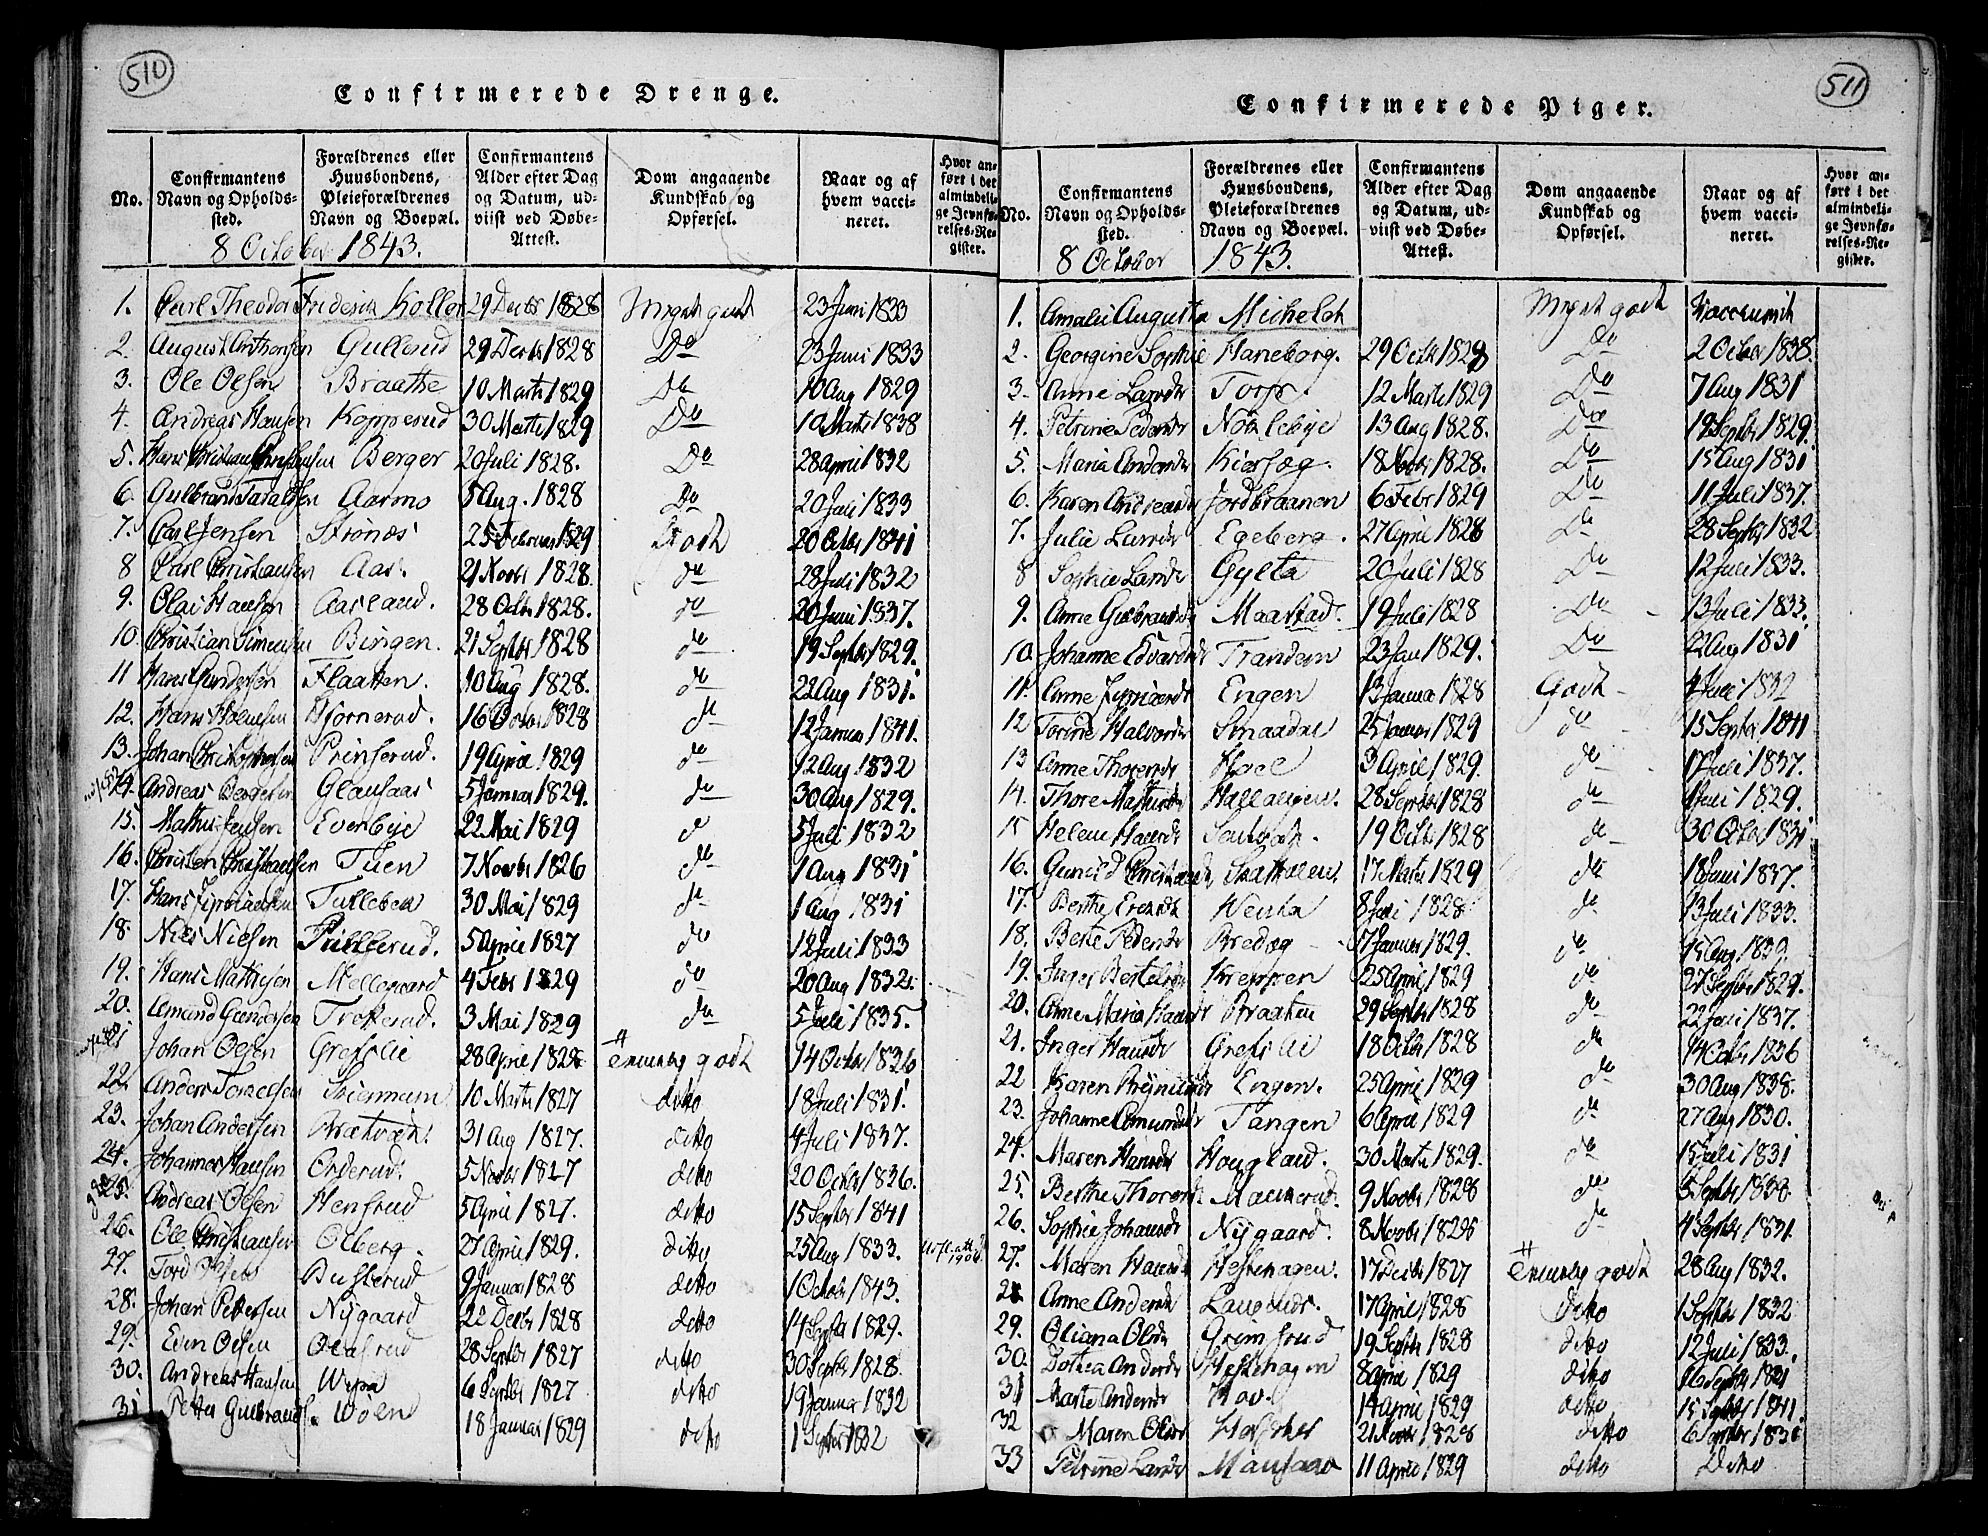 510
Confirmerede Drenge.
No. Confirmantens Navn og Opholds-sted. Forældrenes eller Huusbondens, Pleieforældrenes Navn og Boepæl. Confirmantens Alder efter Dag og Datum, ud-viist ved Døbe-Attest. Dom angaaende Kundskab og Opførsel. Naar og af hvem vacci-neret. Hvor an-ført i det almindeli-ge Jevnfø-relses-Re-gister.
8 October 1843.
1. Carl Theodor Frederik Koller 29 Decbr 1828 Meget godt 23 Juni 1833
2. August Anthonsen Gullerud 29 Decbr 1828 Do 23 Juni 1833
3. Ole Olsen Braathe 10 Marts 1829 Do 10 Aug 1829
4. Andreas Hansen Kopperud 30 Marts 1829 Do 10 Marts 1838
5. Hans Christian Berger 20 Juli 1828. Do 28 April 1832
6. Aarmo 5 Aug. 1828 Do 20 Juli 1833
7. Carl Jensen Strønæs 25 Februar 1829 Godt 20 Octbr 1841
8 Carl Christiansen Aas. 21 Novbr 1828. do 28 Juli 1832
9. Olai Hansen Aasland. 28 Octbr 1828. do 20 Juni 1837.
10. Christian Simensen Bingen. 21 Septbr 1828 do 19 Septbr 1829.
11 Hans Gundersen Flaatten. 10 Aug 1828. do 22 Aug 1831.
12. Hans Bjørnerud. 16 Octobr 1828 do 12 Januar 1841.
13. Johan Christophersen Prinserud. 19 April 1829 do 12 Aug. 1832
14. Andreas 5 Januar 1829. do 30 Aug 1829.
15. Mathis Jensen Evenbye 22 Mai 1829 do 5 Juli 1832
16. Christen Christiansen Tuen 7 Novbr 1826 do 1 Aug 1831
17. Hans 30 Mai 1829 do 1 Aug 1831
18. Niels Nielsen 5 April 1827 do 12 Juli 1833
19. Hans Mathisen Mellegaard 4 Febr 1829 do 20 Aug 1832.
20. Amund Gundersen Trøkerud. 3 Mai 1829 do 5 Juli 1835.
21 Johan Olsen Grefslie 28 April 1828 Temmelig godt 14 Octbr 1836
22. Anders 10 Marts 1827 ditto 18 Juli 1831.
23. Johan Andersen 31 Aug 1827. ditto 4 Juli 1837.
24. Johannes Hansen Orderud. 5 Novbr 1827 ditto 20 Octbr 1836.
25. Andreas Olsen Henserud 5 April 1827. ditto 15 Septbr 1841
26. Ole Christiansen Olberg. 27 April 1829. ditto 25 Aug 1833.
27. Tord Busterud 9 Januar 1828 ditto 1 October 1843.
28. Johan Pettersen Nygaard 22 Decbr 1828 ditto 14 Septbr 1829.
29. Even Olsen 28 Septbr 1827 ditto 30 Septbr 1828.
30. Andreas Hansen 6 Septbr 1827 ditto 19 Januar 1832
31 Petter Gulbrands. 18 Januar 1829 ditto 1 Septbr 1832
511
Confirmerede Piger.
No. Confirmantens Navn og Opholds-sted. Forældrenes eller Huusbondens, Pleieforældrenes Navn og Boepæl. Confirmantens Alder efter Dag og Datum, ud-viist ved Døbe-Attest. Dom angaaende Kundskab og Opførsel. Naar og af hvem vacci-neret. Hvor an-ført i det almindeli-ge Jevnfø-relses-Re-gister.
8 October 1843.
1. Amalie Augusta Michelet Meget godt
2. Georgine Sophie Haneborg. 29 Octbr 1828 Do 2 Octbr 1838.
3. Anne Larsdr Torp. 12 Marts 1829 Do 7 Aug 1831
4. Petrine Pedersdr 13 Aug 1828. Do 19 Septbr 1829.
5. Maria Andersdr 18 Novbr 1828. Do 15 Aug 1831
6. Karen Andreasdr Jordbraanen 6 Febr 1829 Do 11 Juli 1837.
7. Julie Larsdr Egeberg. 27 April 1828 Do 28 Septbr 1832
8 Sophie Larsdr Gylta 20 Juli 1828 Do 12 Juli 1833.
9. Anne Gulbrandsdr Maarstad. 19 Juli 1828 Do 13 Juli 1833.
10. Johanne Edvardsdr Trandem 23 Jan 1829. Do 2 Aug 1831
11. Anne Engen 13 Januar 1828 Godt 4 Juli 1832
12 Torine Halvorsdr Smaadal 25 Januar 1829 do 15 Septbr 1841
13 Anne Thoresdr Hoel 3 April 1829. do 17 Juli 1837.
14. Thore Mathisdr Hallangen. 28 Septbr 1828 do 1 Juli 1829.
15 Helene Hansdr 19 Octbr 1828 do 30 Octbr 1831
16. Gunild 17 Marts 1829 do 18 Juni 1837.
17. Berthe 8 Juli 1828 do 13 Juli 1833.
18. Berte Pedersdr 17 Januar 1829. do 15 Aug 1839.
19. Inger Bertelsdr Kreppen 25 April 1829 do 27 Septbr 1829.
20. Anne Maria Hansdr Braaten 29 Septbr 1828 do 22 Juli 1837.
21. Inger Hansdr Grefslie 18 Octbr 1828 do 14 Octbr 1836
22 Karen Engen. 25 April 1829 do 30 Aug 1838.
23. Johanne Amundsdr Tangen 6 April 1829 do 27 Aug 1830.
24. Maren Hansdr Hougland. 30 Marts 1829. do 15 Juli 1831
25. Berthe Thoresdr 9 Novbr 1828 do 5 Septbr 1838
26. Sophie Johansdr Nygaard. 8 Novbr 1828 do 4 Septbr 1831.
27. Maren Hansdr Hestehagen. 17 Decbr 1827 Temmelig godt 28 Aug 1832.
28. Anne Andersdr 17 April 1828 ditto 1 Septbr 1832
29. Oliana Olsdr Grimsrud 19 Septbr 1828 ditto 12 Juli 1833.
30. Dothea Andersdr Hestehagen 8 April 1829 ditto
31 Marte Andersdr Hov. 14 April 1829 ditto 15 Septbr 1841.
32 Maren Olsdr 21 Novbr 1828 ditto
33 Petrine Larsdr 11 April 1829 ditto Ditto